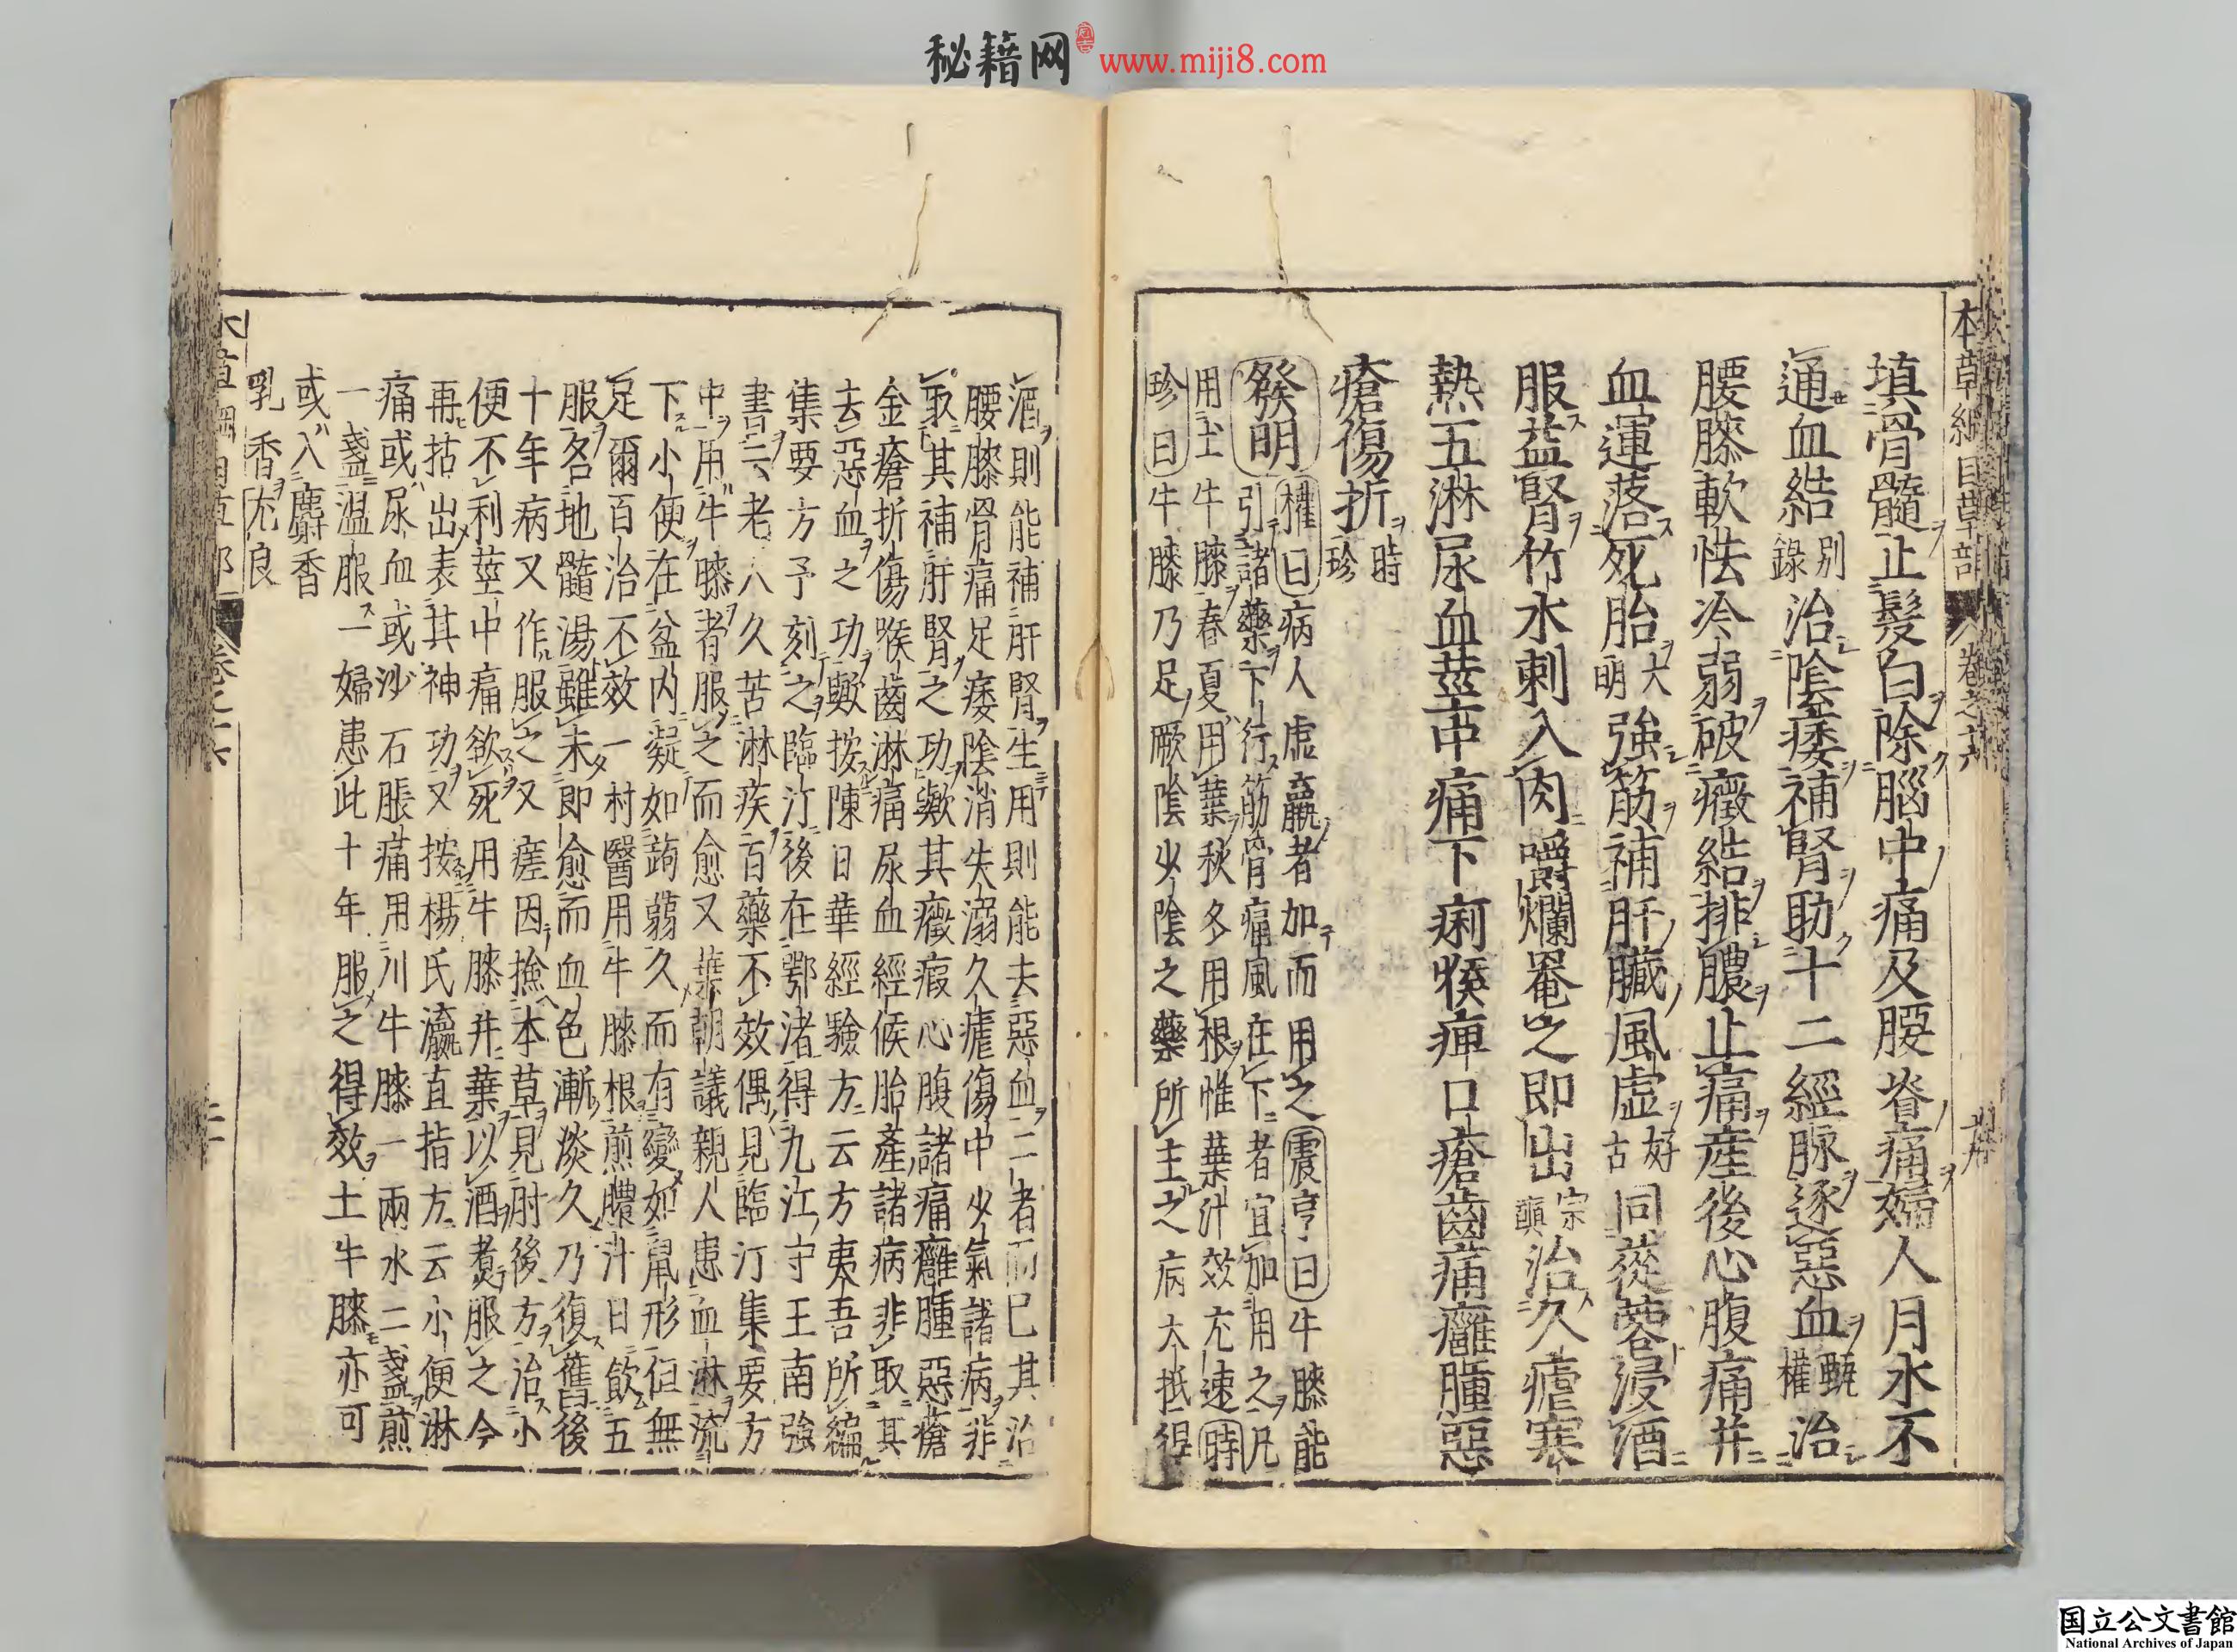 秘籍网 www.miji8.com
本草綱目草部 卷之十六
填骨髓止髮白除腦中痛及腰脊痛婦人月水不
通血結別錄治陰痿補腎助十二經脉逐惡血甄權治
腰膝軟怯冷弱破癥結排膿止痛産後心腹痛并
血運落死胎大明強筋補肝臟風虛好古同蓯蓉浸酒
服益腎竹木刺入肉嚼爛罨之即出宗奭治久瘧寒
熱五淋尿血莖中痛下痢喉痺口瘡齒痛癰腫惡
瘡傷折時珍
發明 權曰病人虛羸者加而用之震亨曰牛膝能
引諸藥下行筋骨痛風在下者宜加用之凡
用土牛膝春夏用葉秋冬用根惟葉汁效尤速時
珍曰牛膝乃足厥陰少陰之藥所主之病大抵得
酒則能補肝腎生用則能去惡血二者而已其治
腰膝骨痛足痿陰消失溺久瘧傷中少氣諸病非
取其補肝腎之功歟其癥瘕心腹諸痛癰腫惡瘡
金瘡折傷喉齒淋痛尿血經候胎產諸病非取其
去惡血之功歟按陳日華經驗方云方夷吾所編
集要方予刻之臨汀後在鄂渚得九江守王南強
書云老人久苦淋疾百藥不效偶見臨汀集要方
中用牛膝者服之而愈又葉朝議親人患血淋流
下小便在盆內凝如蒟蒻久而有變如鼠形但無
足爾百治不效一村醫用牛膝根煎膿汁日飲五
服名地髓湯雖未即愈而血色漸淡久乃復舊後
十年病又作服之又瘥因撿本草見肘後方治小
便不利莖中痛欲死用牛膝并葉以酒煮服之今
再拈出表其神功又按楊氏瀛直指方云小便淋
痛或尿血或沙石脹痛用川牛膝一兩水二盞煎
一盞溫服一婦患此十年服之得效土牛膝亦可
或入麝香
乳香尤良
国立公文書館
National Archives of Japan